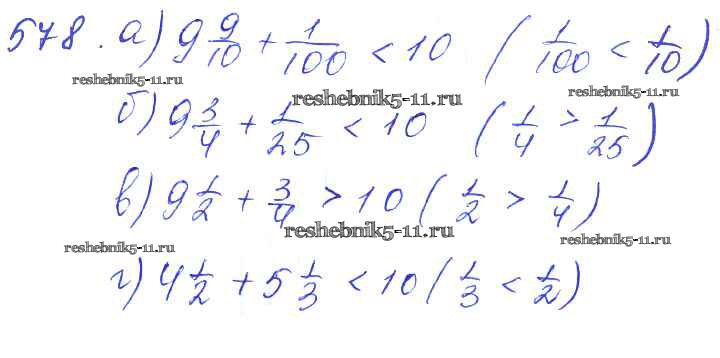 578. а) 9 9/10 + 1/100 < 10 (1/100 < 1/10)
reshebnik5-11.ru reshebnik5-11.ru reshebnik5-11.ru
б) 9 3/4 + 1/25 < 10 (1/4 > 1/25)
в) 9 1/2 + 3/4 > 10 (1/2 > 1/4)
reshebnik5-11.ru reshebnik5-11.ru reshebnik5-11.ru
г) 4 1/2 + 5 1/3 < 10 (1/3 < 1/2)